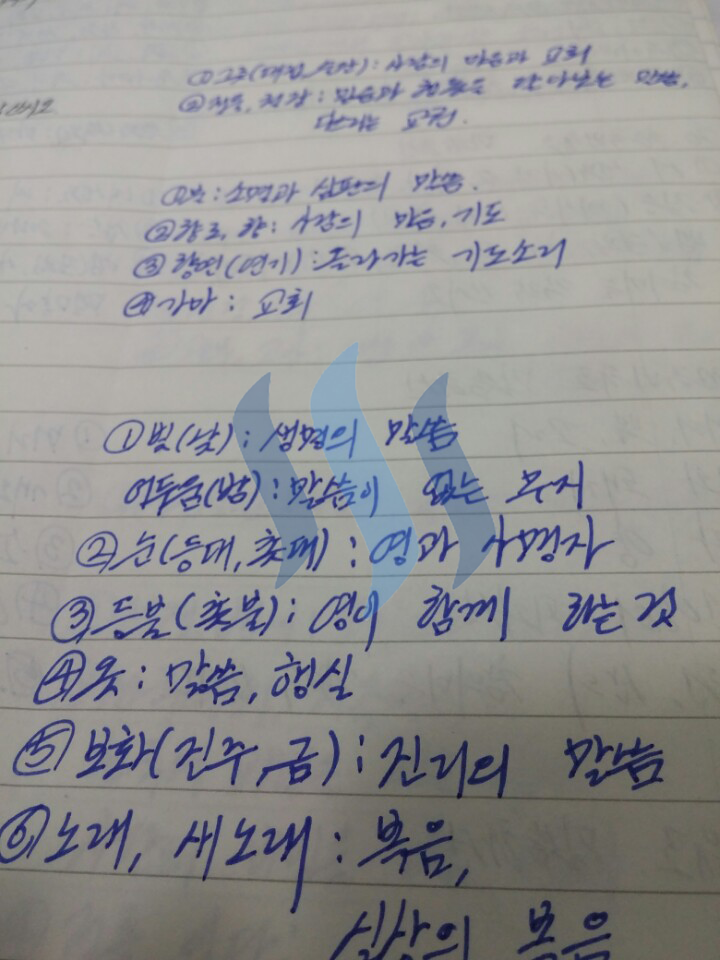 ① 그릇(대접, 잔) : 사람의 마음과 교회
② 저울, 척량 : 말씀과 달아보는 말씀,
교권.
① 불 : 소멸과 심판의 말씀.
② 향로, 향 : 사람의 마음, 기도
③ 향연(연기) : 올라가는 기도소리
④ 가마 : 교회
① 빛(낮) : 생명의 말씀
어두움(밤) : 말씀이 없는 무지
② 눈(등대, 촛대) : 영과 사명자
③ 등불(촛불) : 영이 함께 하는 것
④ 옷 : 말씀, 행실
⑤ 보화(진주, 금) : 진리의 말씀
⑥ 노래, 새노래 : 복음,
복음